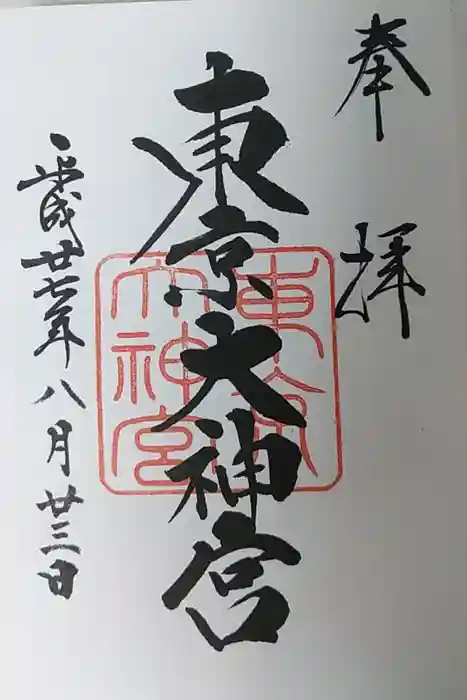 奉拝
東京大神宮
東京大神宮
平成廿七年八月廿三日